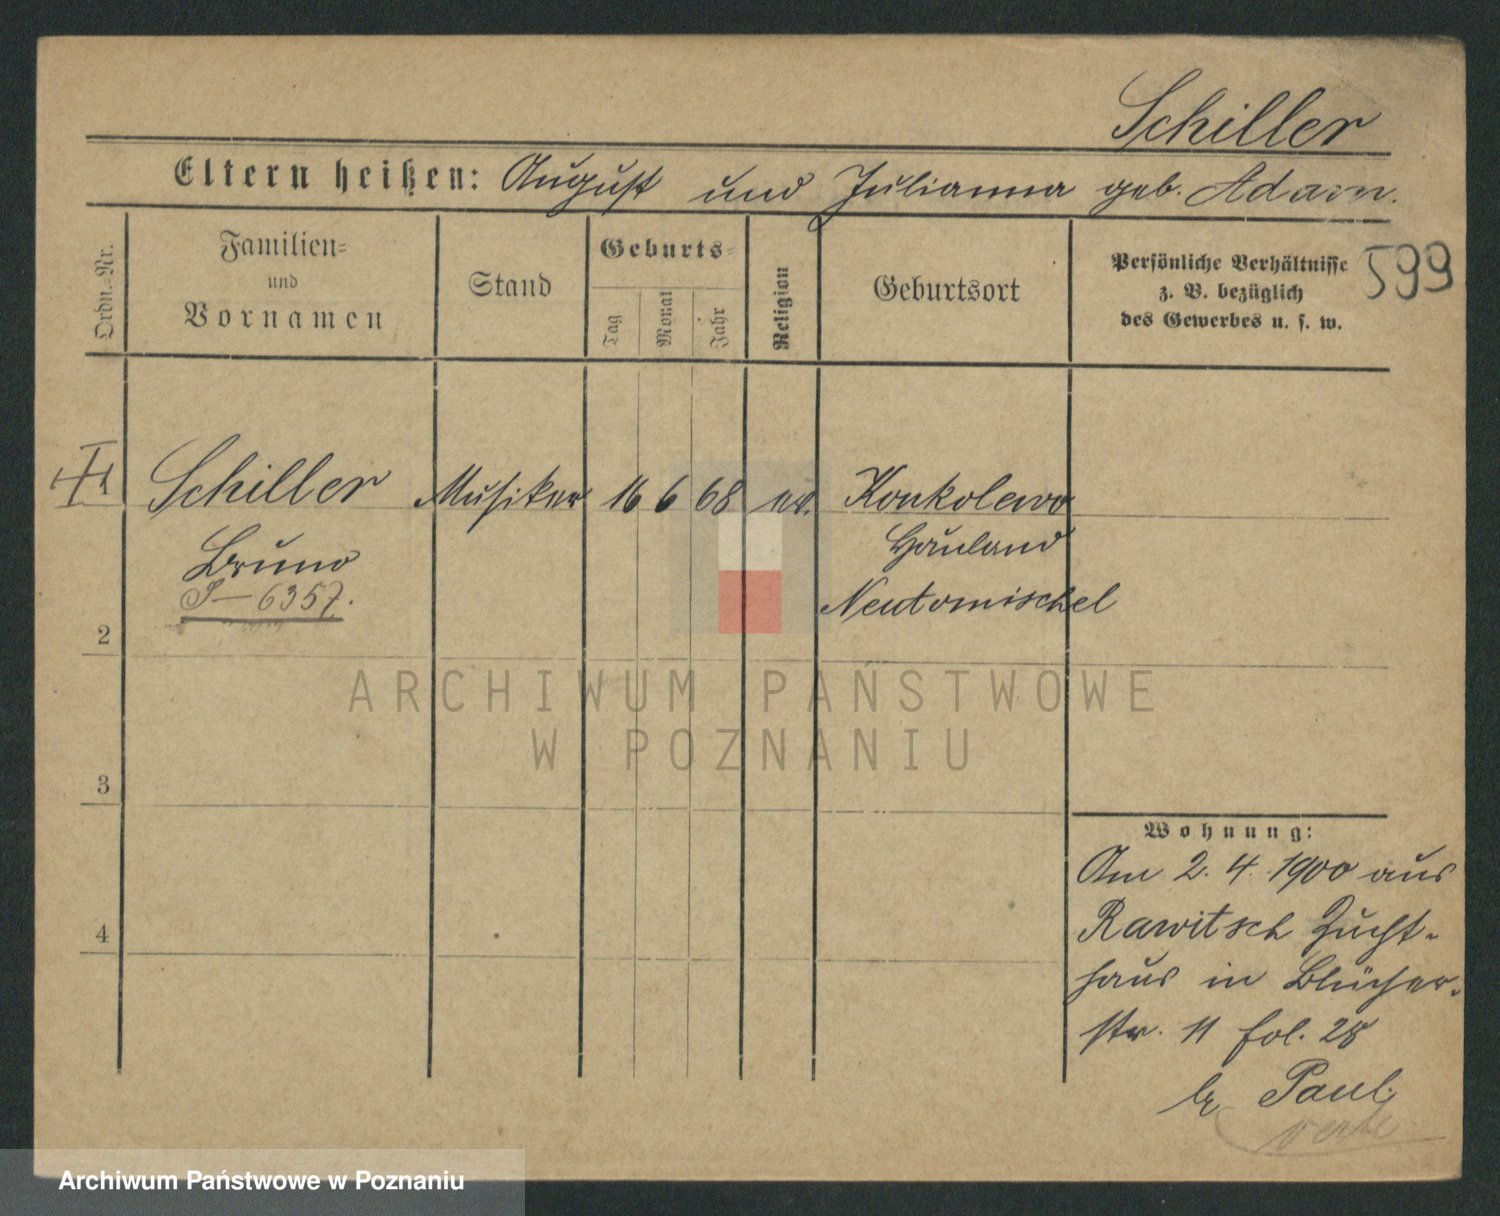 Schiller
Eltern heißen: August und Julianna geb. Adam.
599
Ordn.-Nr.
Familien-
und
Vornamen
Stand
Geburts-
Tag
Monat
Jahr
Religion
Geburtsort
Persönliche Verhältnisse
z. B. bezüglich
des Gewerbes u. s. w.
1
Schiller Musiker 16 6 68 ev. Konkolewo
Bruno Hauland
Neutomischel
6357.
2
3
4
Wohnung:
Am 2. 4. 1900 aus
Rawitsch Zucht-
haus in Blücher-
str. 11 fol. 28
Paul
verte
ARCHIWUM PAŃSTWOWE
W POZNANIU
Archiwum Państwowe w Poznaniu